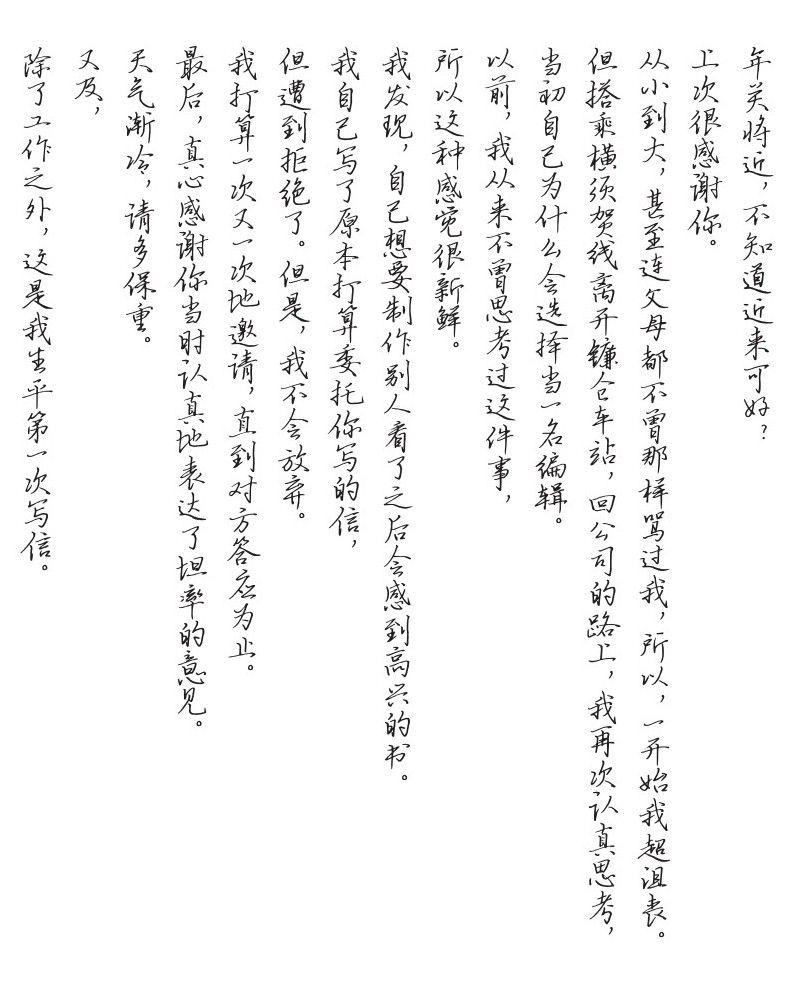 年关将近，不知道近来可好？
上次很感谢你。
从小到大，甚至连父母都不曾那样骂过我，所以，一开始我超沮丧。
但搭乘横须贺线离开镰仓车站，回公司的路上，我再次认真思考，
当初自己为什么会选择当一名编辑。
以前，我从来不曾思考过这件事，
所以这种感觉很新鲜。
我发现，自己想要制作别人看了之后会感到高兴的书。
我自己写了原本打算委托你写的信，
但遭到拒绝了。但是，我不会放弃。
我打算一次又一次地邀请，直到对方答应为止。
最后，真心感谢你当时认真地表达了坦率的意见。
天气渐冷，请多保重。
又及，
除了工作之外，这是我生平第一次写信。